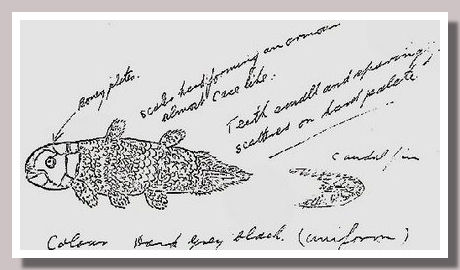 Boney plates.
scales hard forming an armour
almost like.
Teeth small and
scattered on hard palate
Caudal fin
Colour Dark Grey black. (uniform)